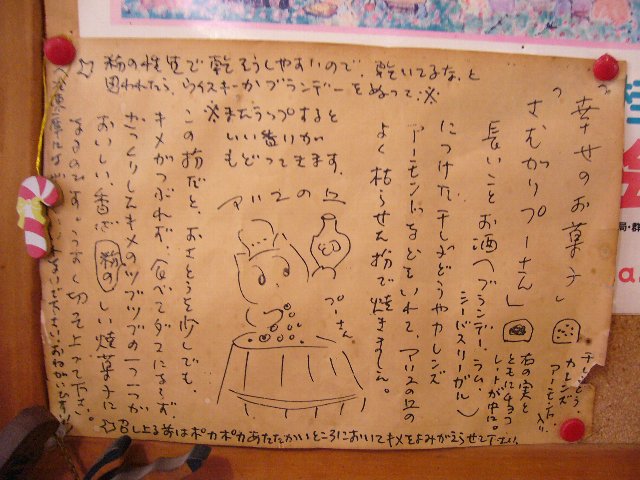 「幸せのお菓子」
「さむがりプーさん」
干しぶどう、
カレンズ
アーモンド、入り
右の実と
ともにチョコ
レートが中に。
長いことお酒(ブランデー、ラム、
シーバスリーガル)
につけた干しぶどうやカレンズ
アーモンドなどをいれて、アリスの丘の
よく枯らせた粉で焼きました。
アリスの丘
プーさん
この粉だと、おさとうを少しでも、
キメがつぶれず、食べてダメにならず
がっくりしたキメのツブツブの一つ一つが
おいしい、香ぷ 粉の しい焼菓子に
なるのです。うすく切って上って下さい。
☆粉の性質で乾そうしやすいので、乾いてるな、と
思われたら、ウイスキーかブランデーをぬって、※
※またラップすると
いい香りが
もどってきます。
☆召し上る前はポカポカあたたかいところにおいてキメをよみがえらせて下さい